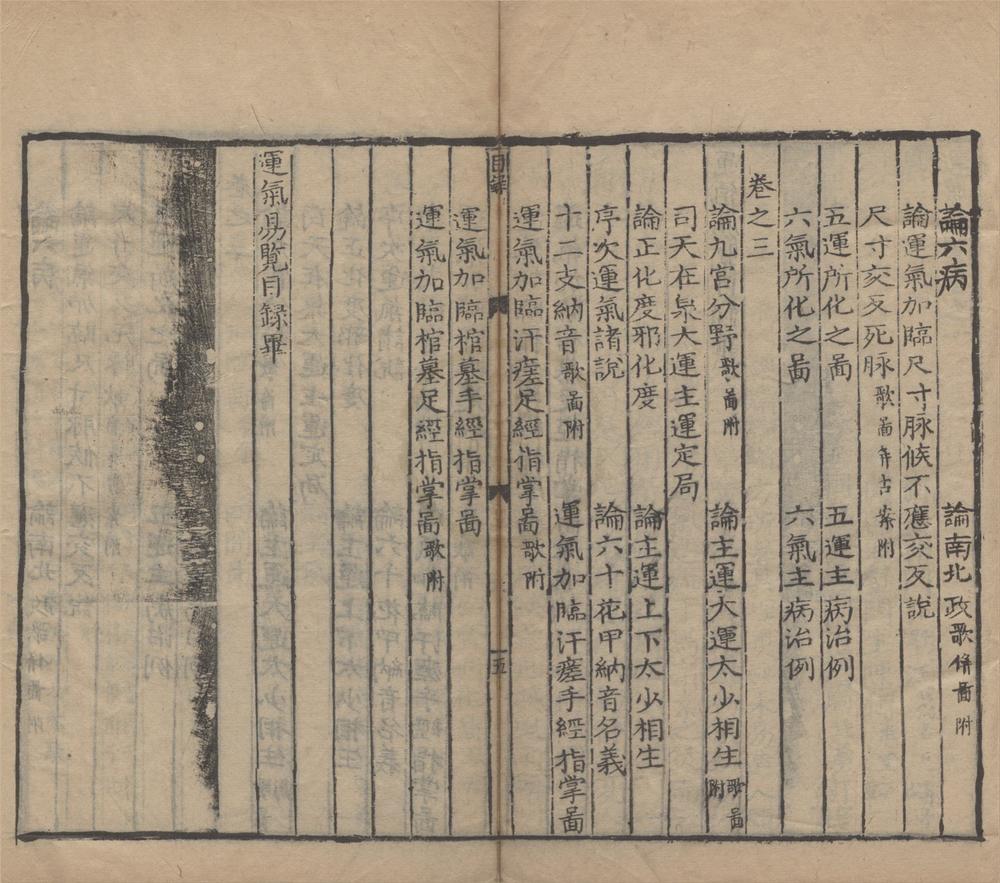 論六病 論南北政歌併啚附
論運氣加臨尺寸脉候不應交反說
尺寸交反死脉歌啚并古案附
五運所化之啚 五運主病治例
六氣所化之啚 六氣主病治例
卷之三
論九宮分野歌啚附 論主運大運太少相生歌啚附
司天在泉大運主運定局
論正化度邪化度 論主運上下太少相生
序次運氣諸說 論六十花甲納音名義
十二支納音歌啚附 運氣加臨汗瘥手經指掌啚
運氣加臨汗瘥足經指掌啚歌附
目録 五
運氣加臨棺墓手經指掌啚
運氣加臨棺墓足經指掌啚歌附
運氣易覽目録畢